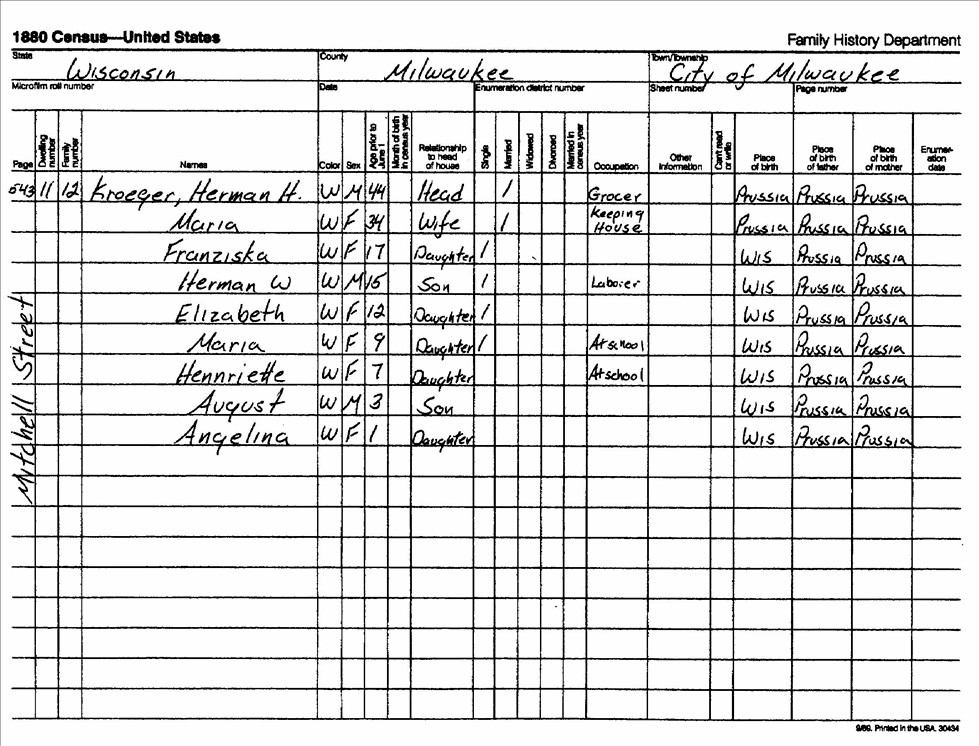 1880 Census—United States
Family History Department
State County Town/Township
Wisconsin Milwaukee City of Milwaukee
Microfilm roll number Date Enumeration district number Sheet number Page number
Page Dwelling number Family number Names Color Sex Age prior to June 1 Month of birth in census year Relationship to head of house Single Married Widowed Divorced Married in census year Occupation Other information Can't read or write Place of birth Place of birth of father Place of birth of mother Enumer-ation date
543 11 12 Kroeger, Herman H. W M 44 Head / Grocer Prussia Prussia Prussia
Maria W F 34 Wife / Keeping House Prussia Prussia Prussia
Franziska W F 17 Daughter / Wis Prussia Prussia
Herman W W M 15 Son / Laborer Wis Prussia Prussia
Elizabeth W F 12 Daughter / Wis Prussia Prussia
Maria W F 9 Daughter / At school Wis Prussia Prussia
Hennriette W F 7 Daughter At school Wis Prussia Prussia
August W M 3 Son Wis Prussia Prussia
Angelina W F 1 Daughter Wis Prussia Prussia
Mitchell Street
9/89. Printed in the USA. 30434